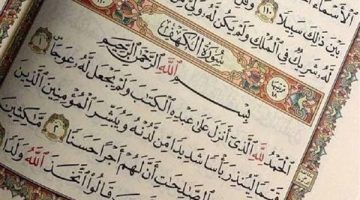 الْأَسْمَاءُ
بَيْنَ ذَٰلِكَ سَبِيلًا وَقُلِ
لَّهُ شَرِيكٌ فِي الْمُلْكِ وَلَمْ يَكُن لَّهُ وَلِيٌّ
سُورَةُ الْكَهْفِ
بِسْمِ اللَّهِ الرَّحْمَٰنِ الرَّحِيمِ
الْحَمْدُ لِلَّهِ الَّذِي أَنزَلَ عَلَىٰ عَبْدِهِ الْكِتَٰبَ وَلَمْ يَجْعَل لَّهُ عِوَجًا
قَيِّمًا لِّيُنذِرَ بَأْسًا شَدِيدًا مِّن لَّدُنْهُ وَيُبَشِّرَ الْمُؤْمِنِينَ الَّذِينَ
الصَّٰلِحَاتِ أَنَّ لَهُمْ أَجْرًا حَسَنًا مَّٰكِثِينَ
قَالُوا اتَّخَذَ اللَّهُ وَلَدًا